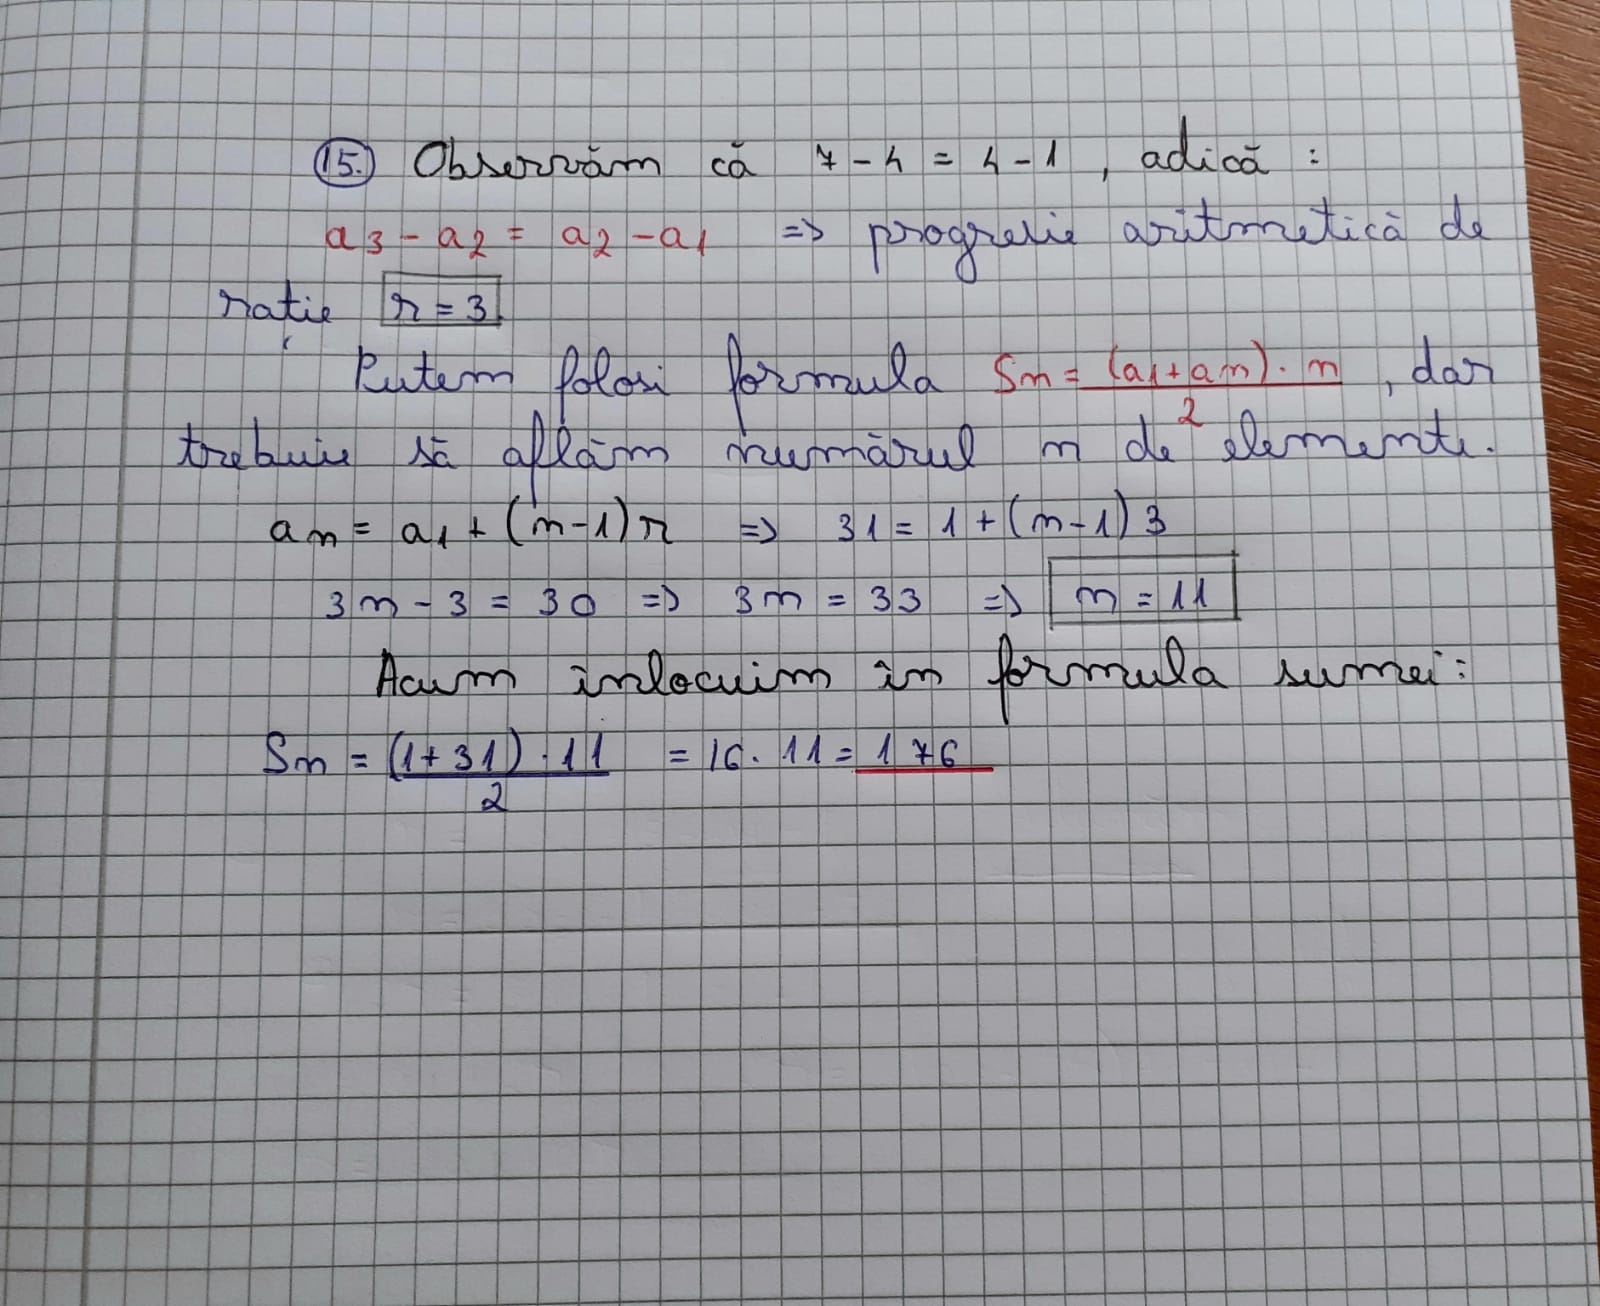 15. Observăm că 7 - 4 = 4 - 1 , adică :
a3 - a2 = a2 - a1 => progresie aritmetică de
rație r = 3
Putem folosi formula Sn = (a1 + an) · n / 2 , dar
trebuie să aflăm numărul n de elemente.
an = a1 + (n-1) r => 31 = 1 + (n-1) 3
3n - 3 = 30 => 3n = 33 => n = 11
Acum înlocuim în formula sumei:
Sn = (1 + 31) · 11 / 2 = 16 · 11 = 176